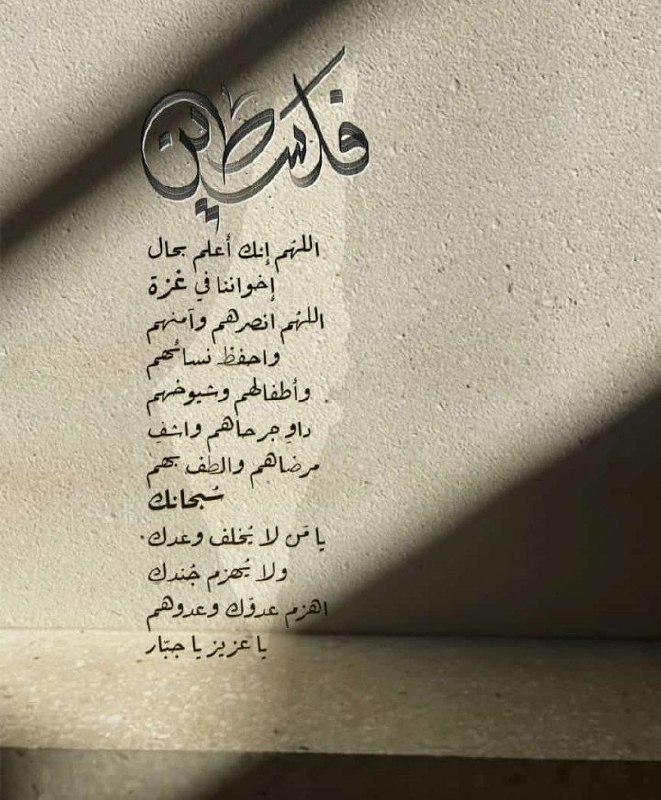 فلسطين
اللهم إنك أعلم بحال
إخواننا في غزة
اللهم انصرهم وآمنهم
واحفظ نسائهم
وأطفالهم وشيوخهم .
داوِ جرحاهم واشفِ
مرضاهم والطف بهم
سُبحانك
يا مَن لا يُخلف وعدك.
ولا يُهزم جُندك
اهزم عدوّك وعدوهم
يا عزيز يا جبّار